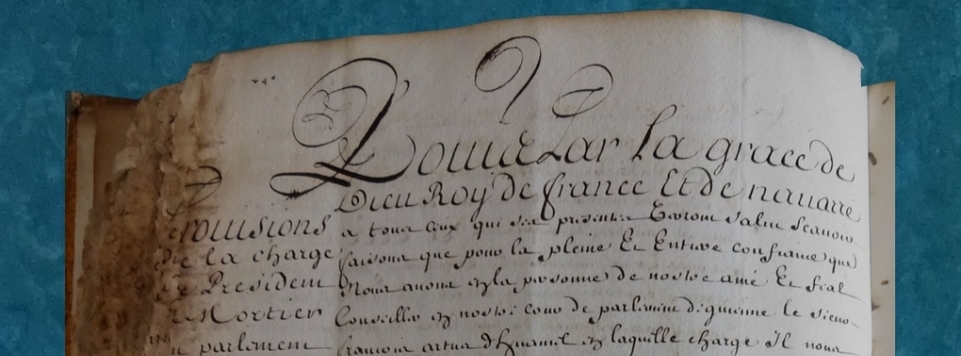 Louis Par la grace de
Dieu Roy de france Et de navarre
Provisions
de la charge
de President
a Mortier
au parlement
a tous ceux qui ces presentes Verront salut scavoir
faisons que pour la pleine Et Entiere confiance que
Nous avons en la personne de nostre amé Et feal
Conseiller en nostre cour de parlement de guienne le sieur
francois artus en laquelle charge Il nous